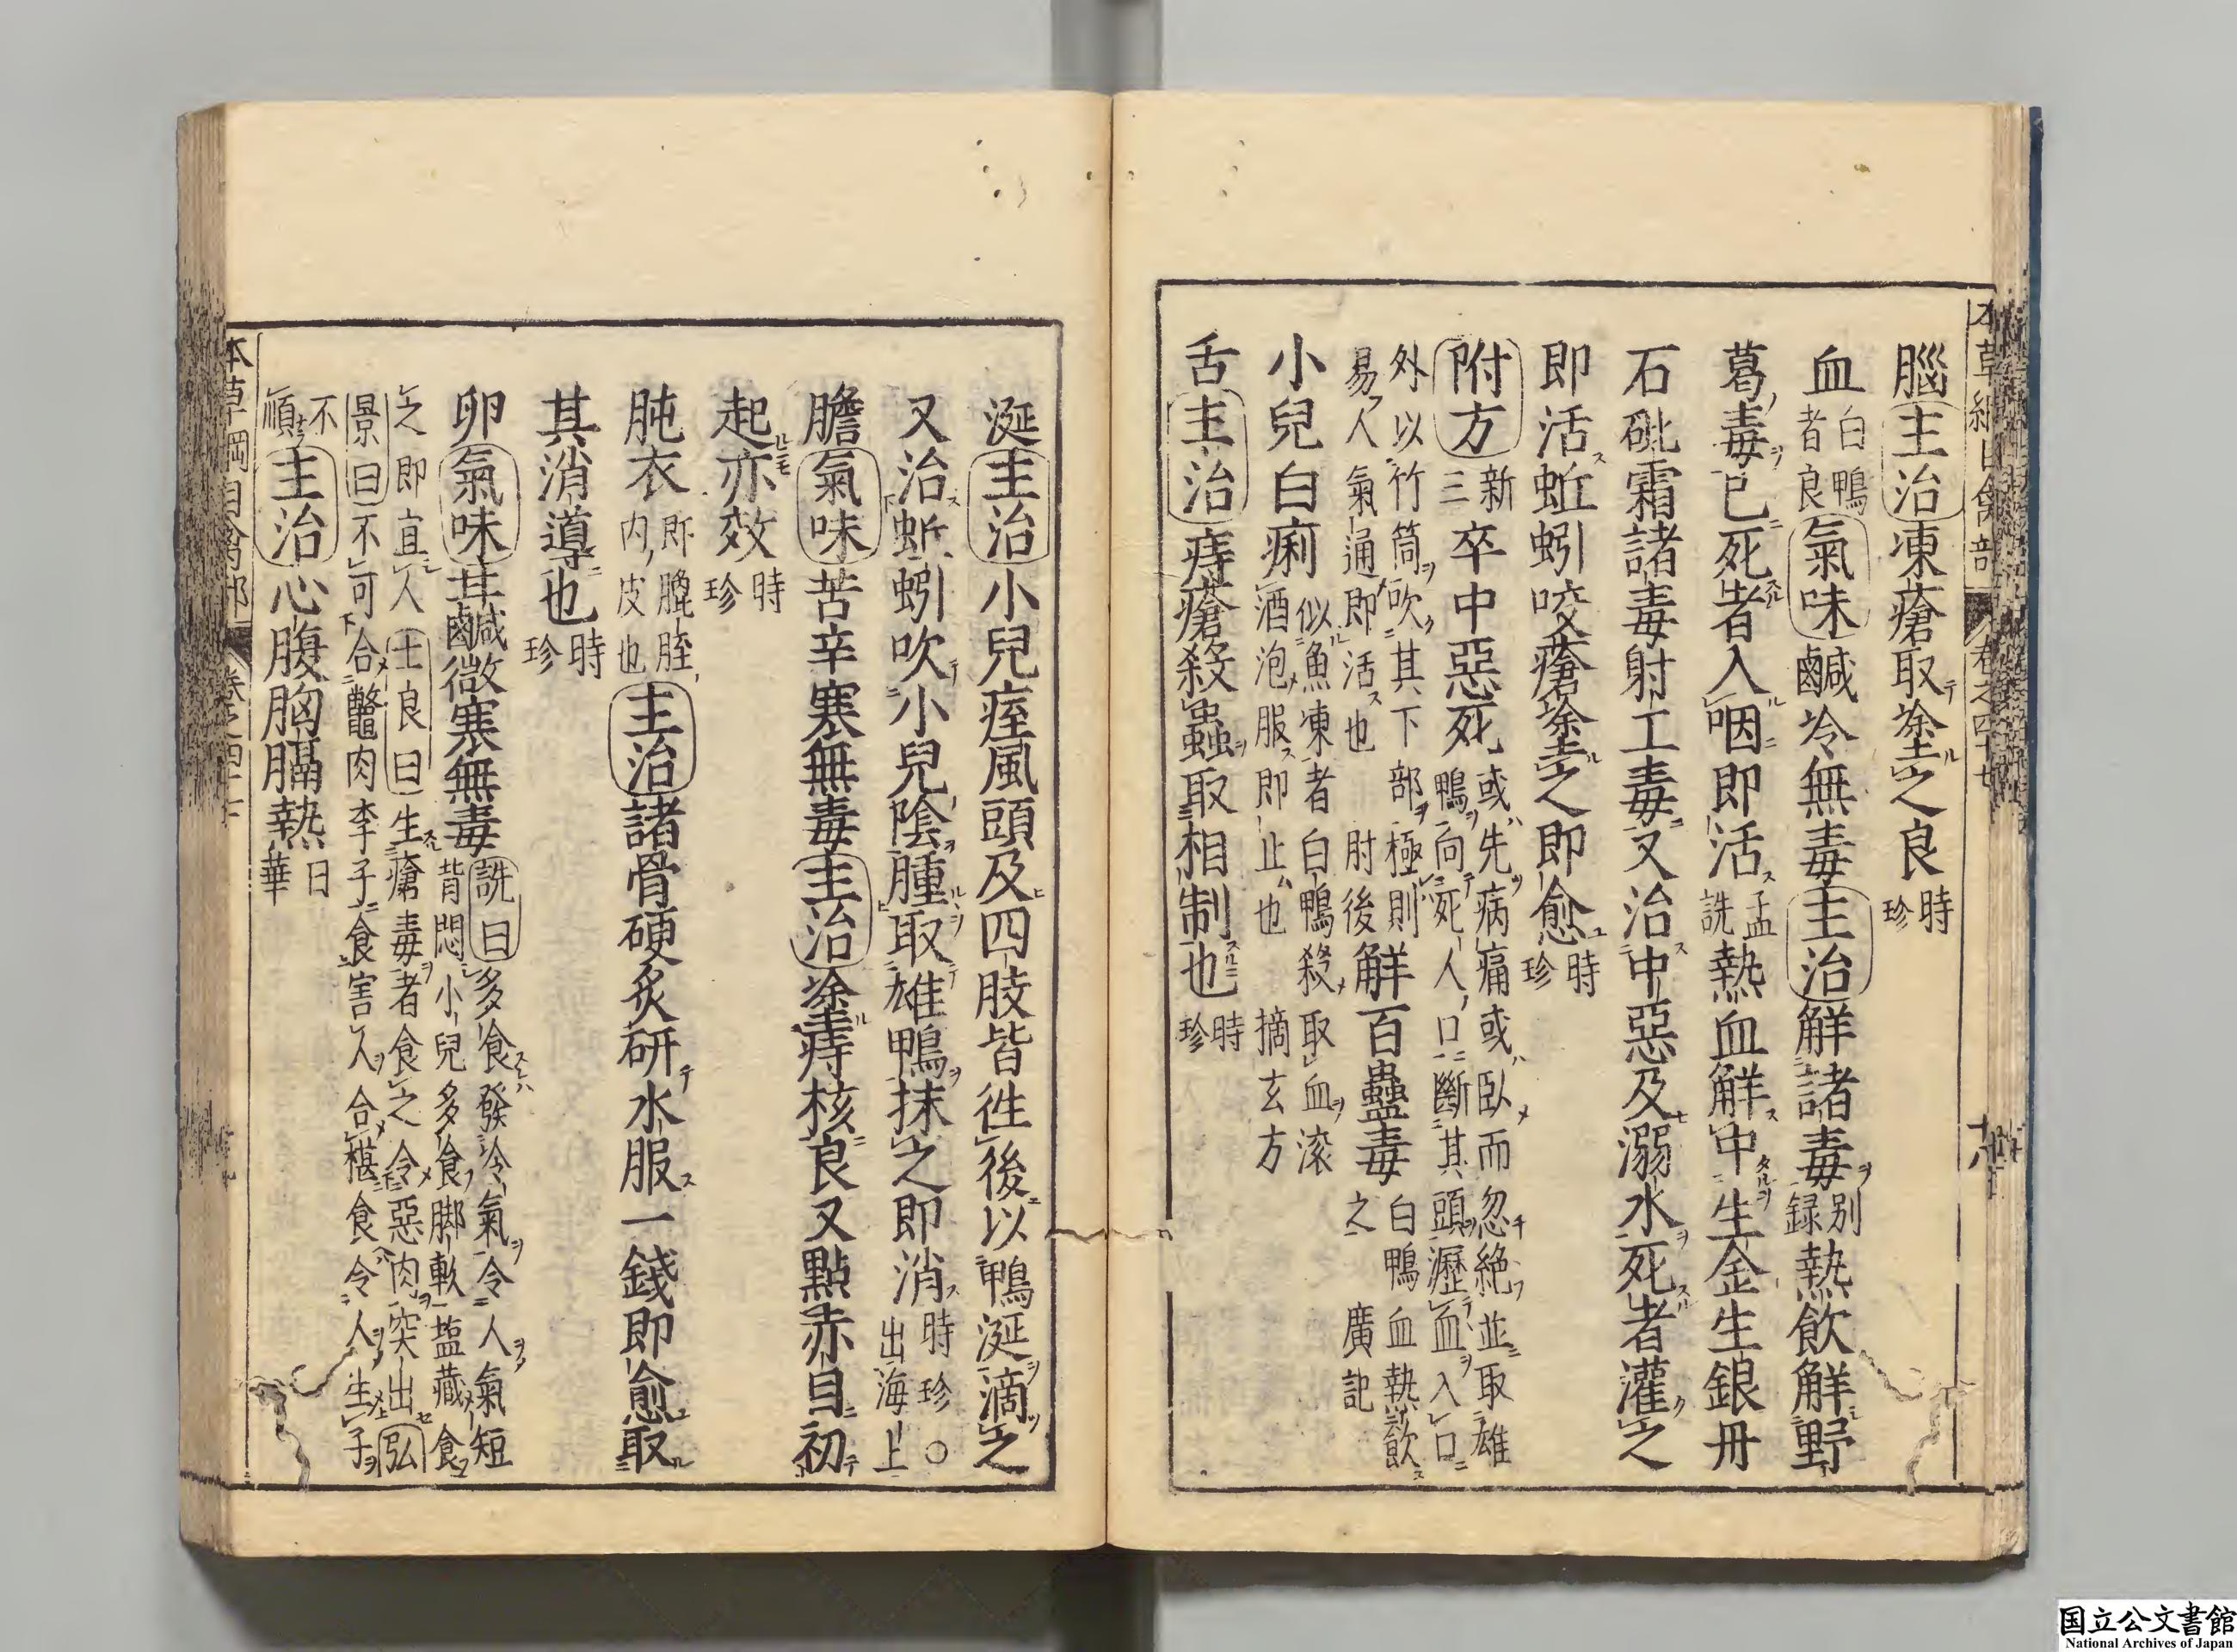 本草綱目禽部 卷之四十七 十八
腦主治凍瘡取塗之良時珍
血白鴨者良氣味鹹冷無毒主治解諸毒別録熱飲解野
葛毒已死者入咽即活孟詵熱血解中生金生銀丹
石砒霜諸毒射工毒又治中惡及溺水死者灌之
即活蚯蚓咬瘡塗之即愈時珍
附方新三卒中惡死或先病痛或臥而忽絶並取雄鴨向死人口斷其頭瀝血入口
外以竹筒吹其下部極則易人氣通即活也肘後解百蠱毒白鴨血熱飲之廣記
小兒白痢似魚凍者白鴨殺取血滚酒泡服即止也摘玄方
舌主治痔瘡殺蟲取相制也時珍
涎主治小兒痓風頭及四肢皆徃後以鴨涎滴之
又治蚯蚓吹小兒陰腫取雄鴨抹之即消時珍○出海上
膽氣味苦辛寒無毒主治塗痔核良又點赤目初
起亦效時珍
肫衣即膍胵内皮也主治諸骨硬炙研水服一錢即愈取
其消導也時珍
卵氣味甘鹹微寒無毒詵曰多食發冷氣令人氣短背悶小兒多食脚軟塩藏食
之即宜人士良曰生瘡毒者食之令惡肉突出弘景曰不可合鼈肉李子食害人合椹食令人生子
不順主治心腹胸膈熱日華
本草綱目禽部 卷之四十七
国立公文書館
National Archives of Japan